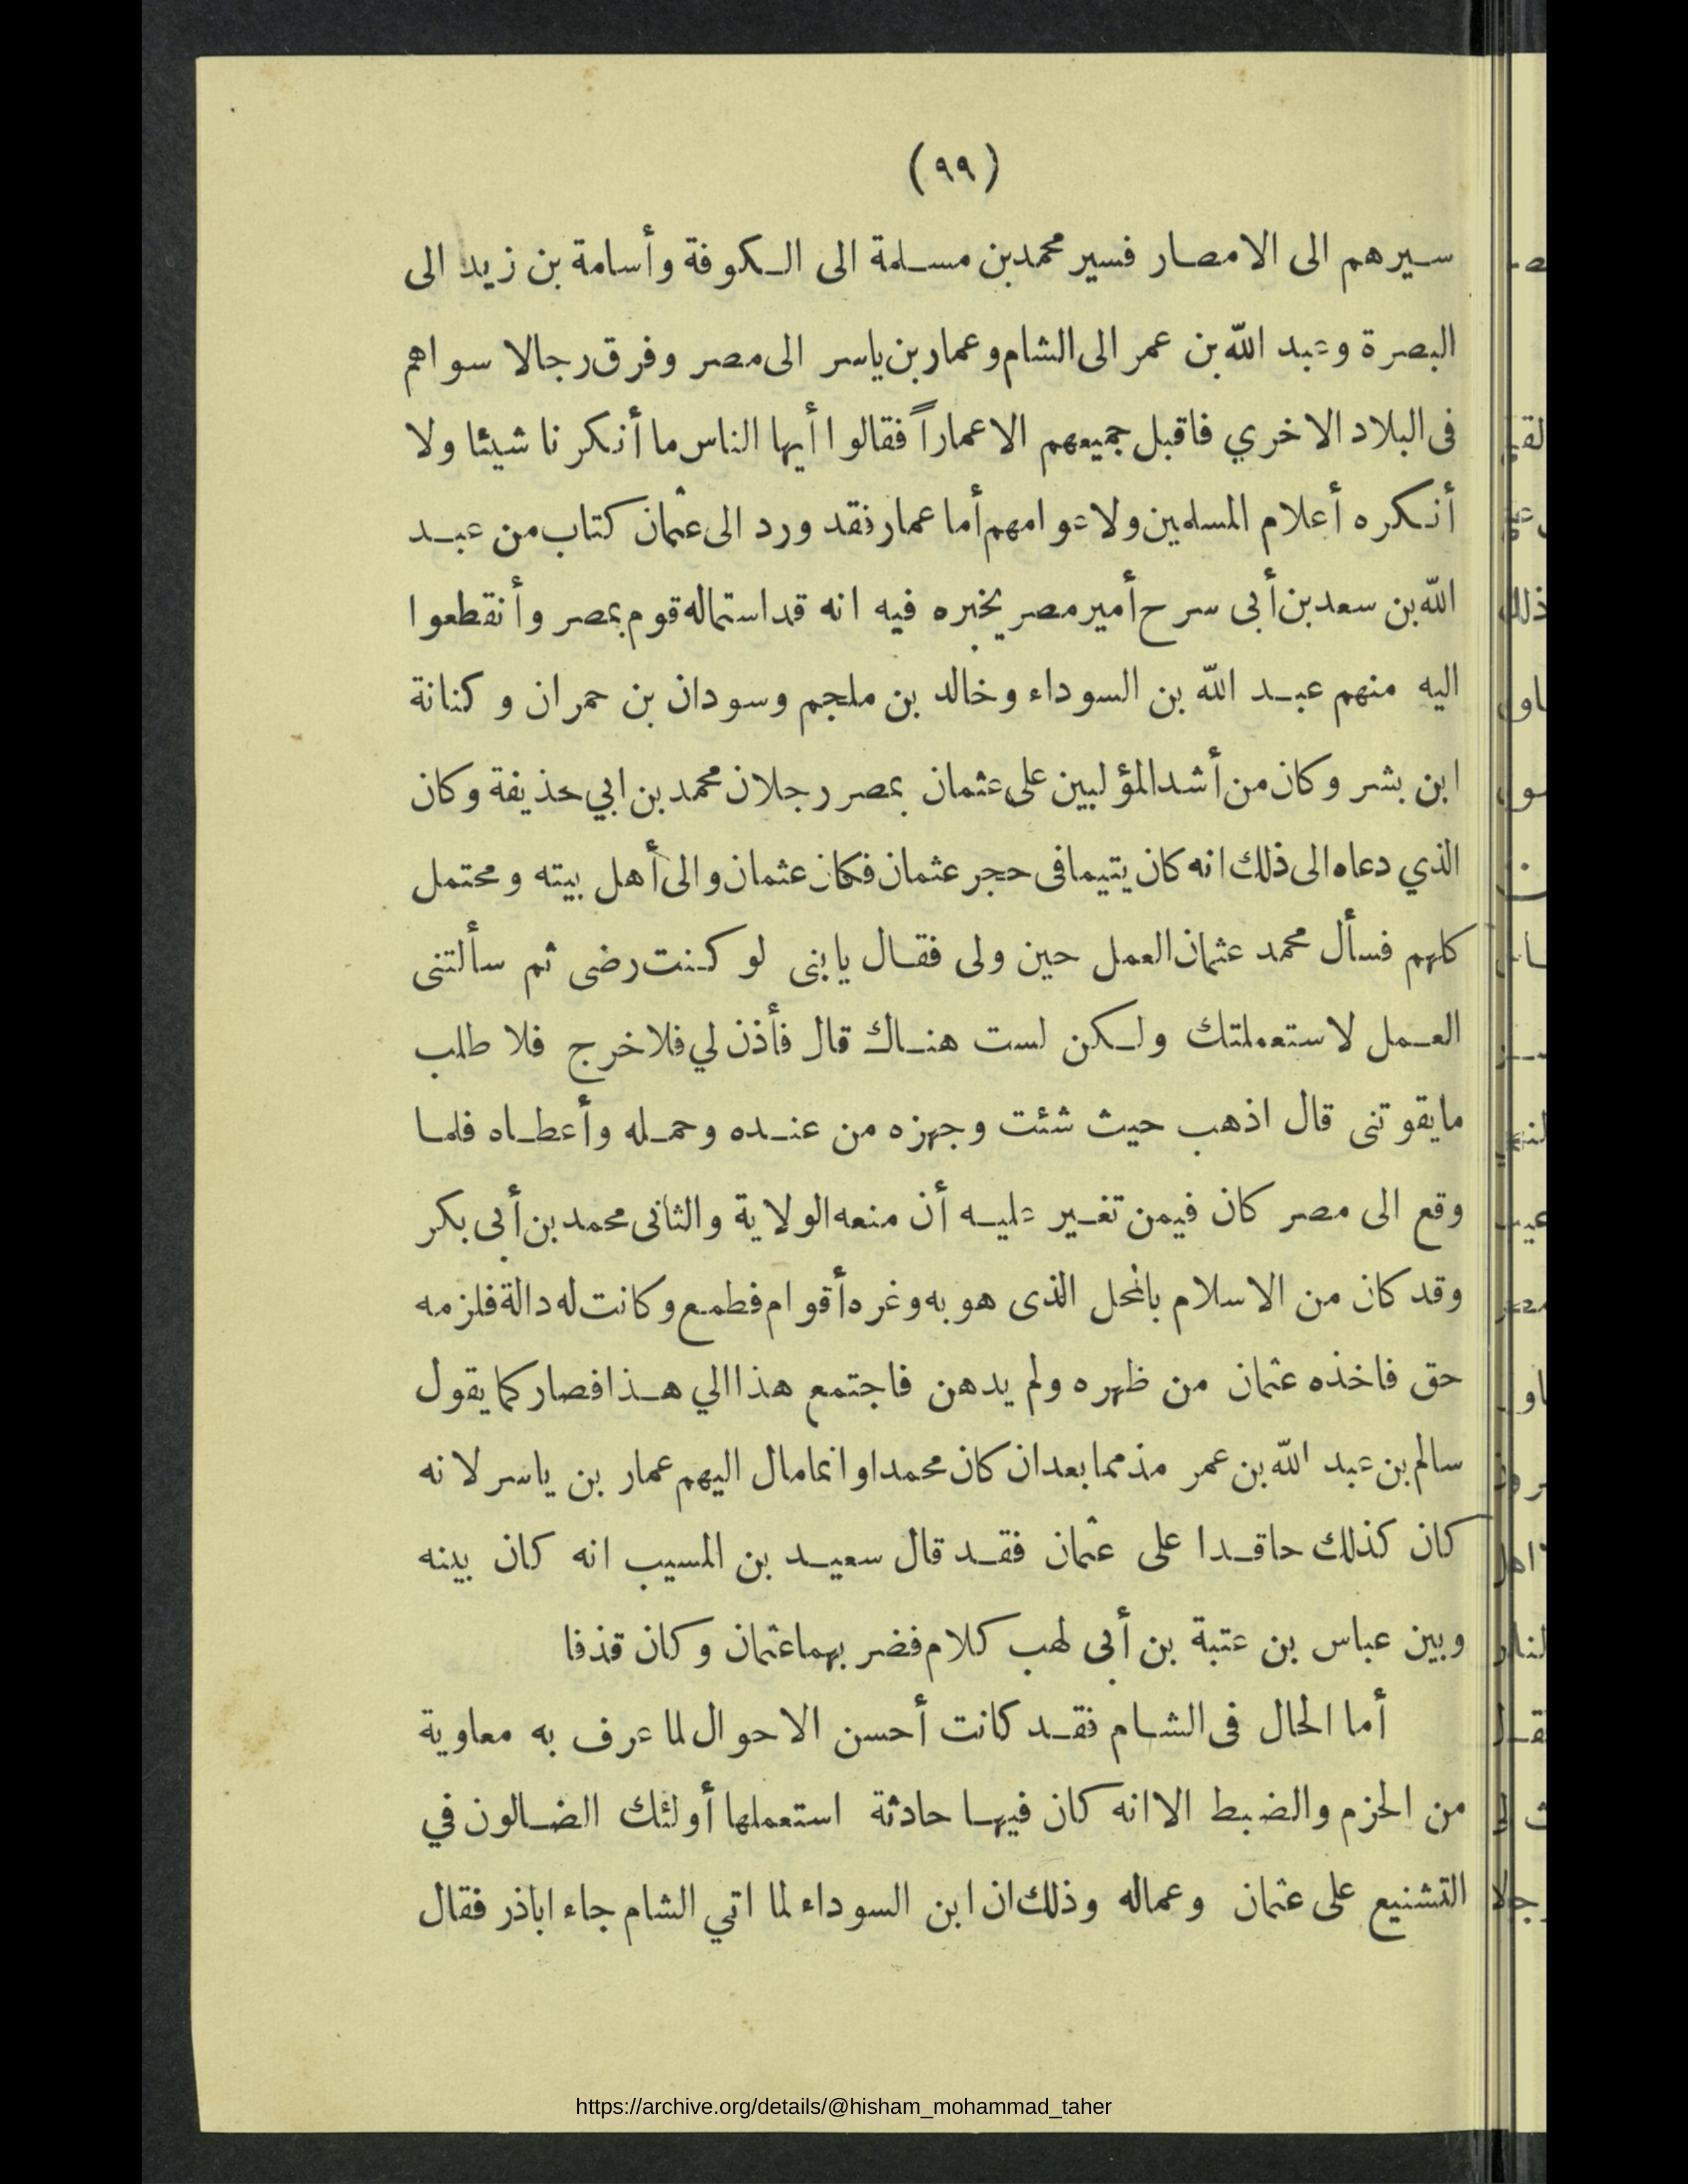 (٩٩)
سيرهم الى الامصار فسير محمد بن مسلمة الى الكوفة وأسامة بن زيد الى
البصرة وعبد الله بن عمر الى الشام وعمار بن ياسر الى مصر وفرق رجالا سواهم
فى البلاد الاخري فاقبل جميعهم الا عماراً فقالوا أيها الناس ما أنكرنا شيئا ولا
أنكره أعلام المسلمين ولا عوامهم أما عمار فقد ورد الى عثمان كتاب من عبد
الله بن سعد بن أبى سرح أمير مصر يخبره فيه انه قد استماله قوم بمصر وأنقطعوا
اليه منهم عبد الله بن السوداء وخالد بن ملجم وسودان بن حمران وكنانة
ابن بشر وكان من أشد المؤلبين على عثمان بمصر رجلان محمد بن ابي حذيفة وكان
الذي دعاه الى ذلك انه كان يتيما فى حجر عثمان فكان عثمان والى أهل بيته ومحتمل
كلهم فسأل محمد عثمان العمل حين ولى فقال يابنى لو كنت رضى ثم سألتنى
العمل لاستعملتك ولكن لست هناك قال فأذن لي فلاخرج فلا طلب
مايقوتنى قال اذهب حيث شئت وجهزه من عنده وحمله وأعطاه فلما
وقع الى مصر كان فيمن تغير عليه أن منعه الولاية والثانى محمد بن أبى بكر
وقد كان من الاسلام بالمحل الذى هو به وغره أقوام فطمع وكانت له دالة فلزمه
حق فاخذه عثمان من ظهره ولم يدهن فاجتمع هذا الي هذا فصار كما يقول
سالم بن عبد الله بن عمر مذمما بعد ان كان محمدا وانما مال اليهم عمار بن ياسر لانه
كان كذلك حاقدا على عثمان فقد قال سعيد بن المسيب انه كان بينه
وبين عباس بن عتبة بن أبى لهب كلام فضربهما عثمان وكان قذفا
أما الحال فى الشام فقد كانت أحسن الاحوال لما عرف به معاوية
من الحزم والضبط الا انه كان فيها حادثة استعملها أولئك الضالون في
التشنيع على عثمان وعماله وذلك ان ابن السوداء لما اتي الشام جاء اباذر فقال
https://archive.org/details/@hisham_mohammad_taher